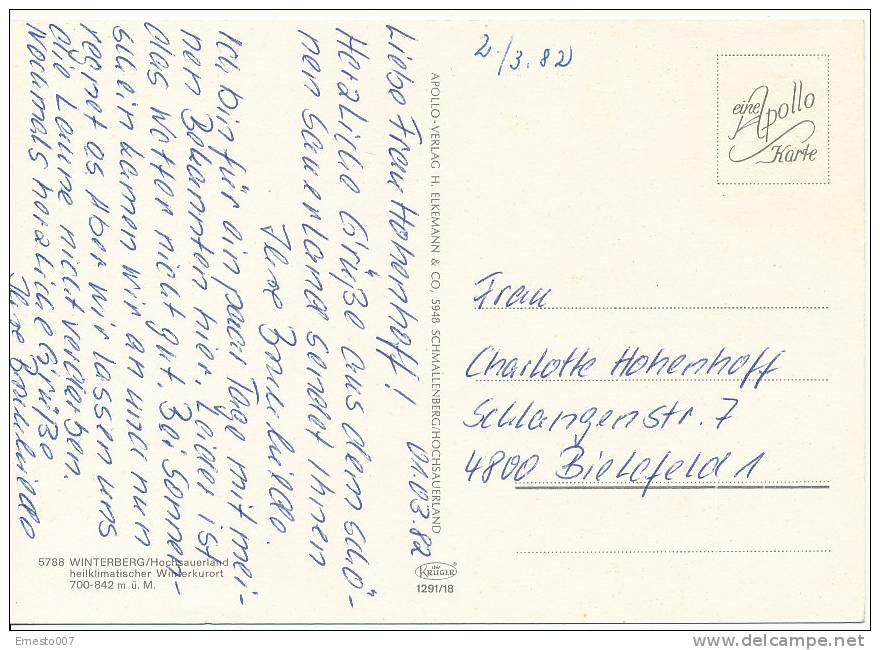 Liebe Frau Hohenhoff! 01.03.82
Herzliche Grüße aus dem schö-
nen Sauerland sendet Ihnen
Ihre
Ich bin für ein paar Tage mit mei-
nen Bekannten hier. Leider ist
das Wetter nicht gut. Bei Sonnen-
schein kamen wir an und nun
regnet es. Aber wir lassen uns
die Laune nicht verderben.
Nochmals herzliche Grüße
Ihre
5788 WINTERBERG/Hochsauerland
heilklimatischer Winterkurort
700-842 m ü. M.
APOLLO-VERLAG H. ELKEMANN & CO, 5948 SCHMALLENBERG/HOCHSAUERLAND
KRÜGER
1291/18
2./3.82
eine Apollo
Karte
Frau
Charlotte Hohenhoff
Schlangenstr. 7
4800 Bielefeld 1
Ernesto007
www.delcampe.net